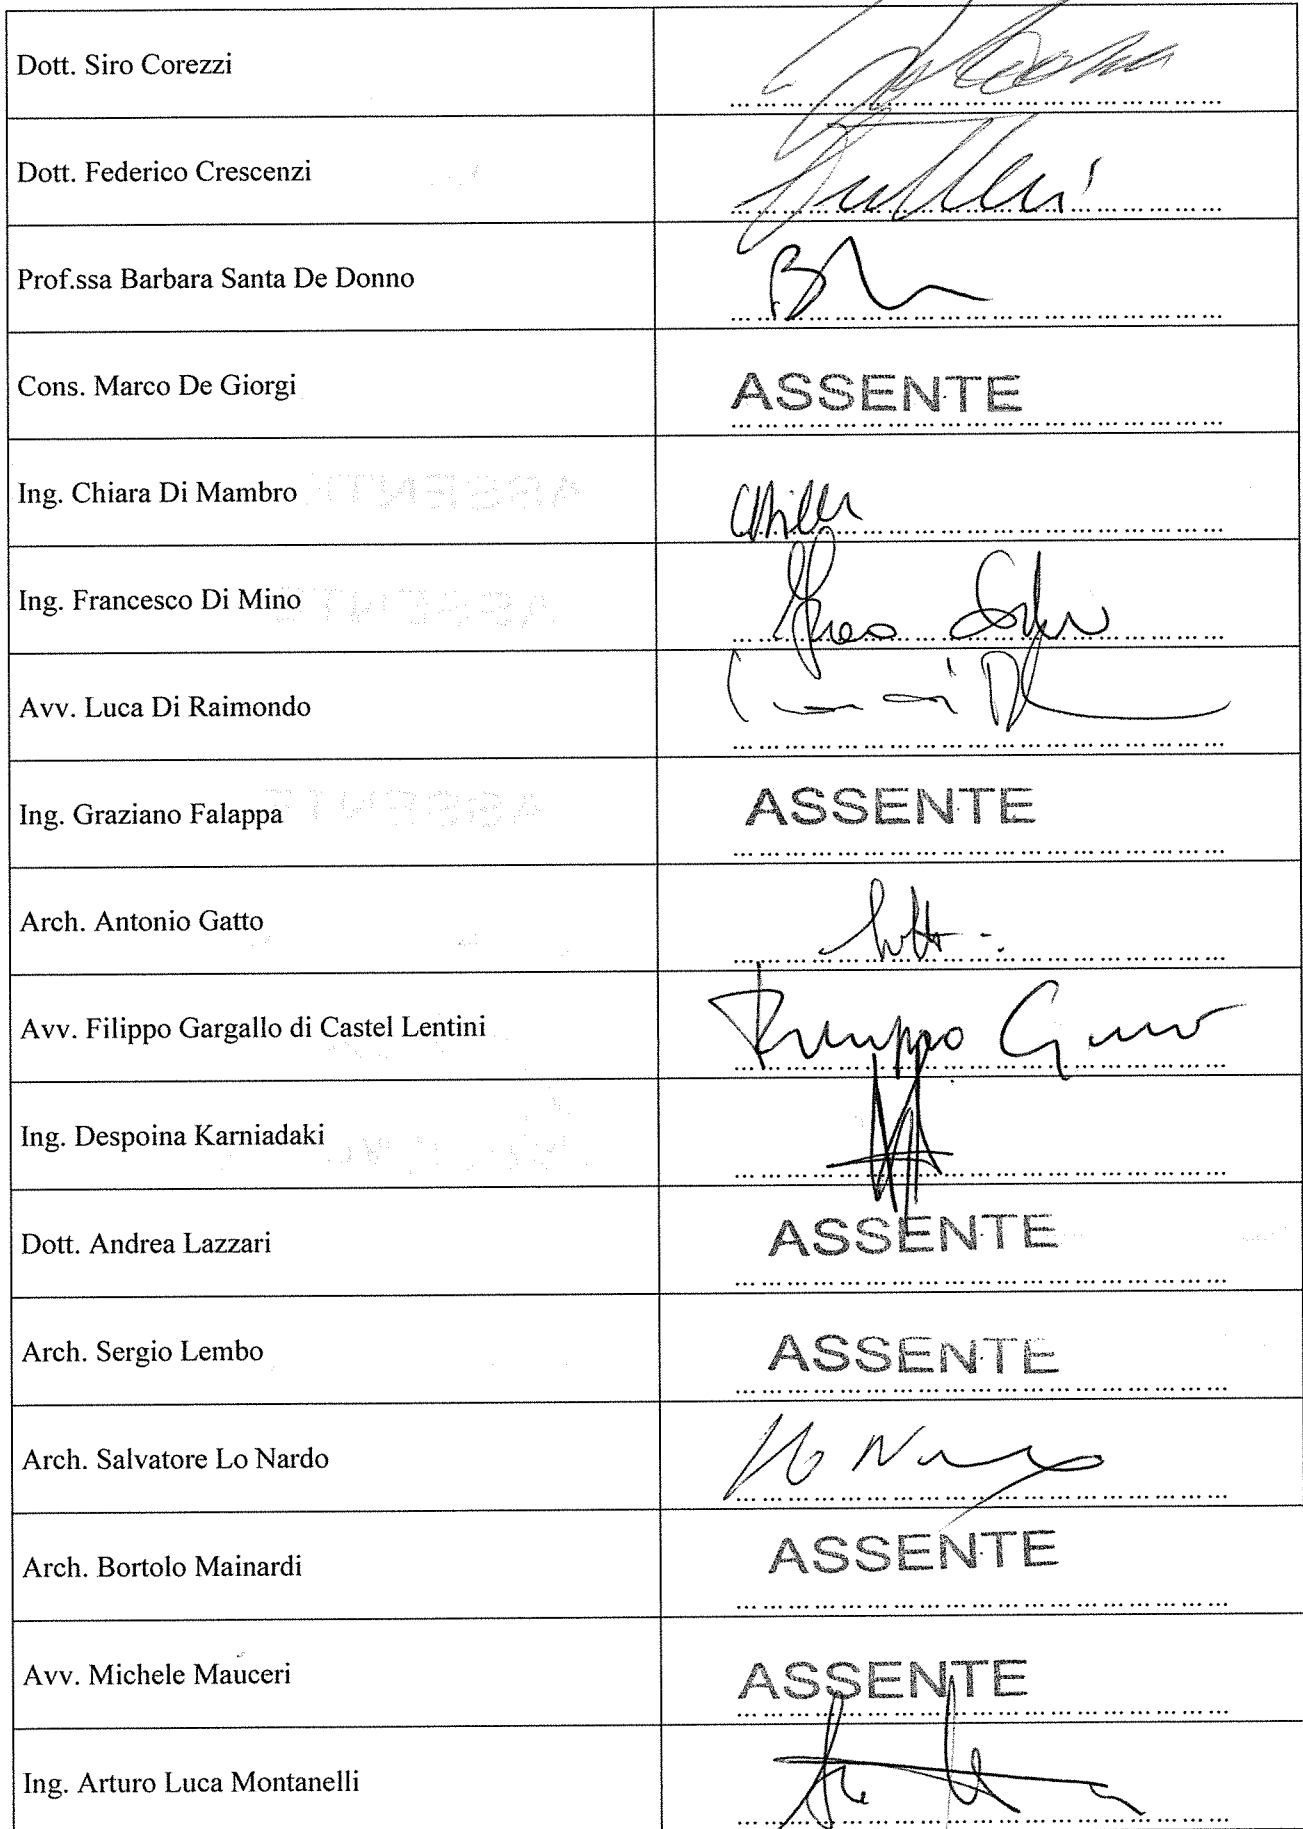 Dott. Siro Corezzi
Dott. Federico Crescenzi
Prof.ssa Barbara Santa De Donno
Cons. Marco De Giorgi
ASSENTE
Ing. Chiara Di Mambro
Ing. Francesco Di Mino
Avv. Luca Di Raimondo
Ing. Graziano Falappa
ASSENTE
Arch. Antonio Gatto
Avv. Filippo Gargallo di Castel Lentini
Ing. Despoina Karniadaki
Dott. Andrea Lazzari
ASSENTE
Arch. Sergio Lembo
ASSENTE
Arch. Salvatore Lo Nardo
Arch. Bortolo Mainardi
ASSENTE
Avv. Michele Mauceri
ASSENTE
Ing. Arturo Luca Montanelli